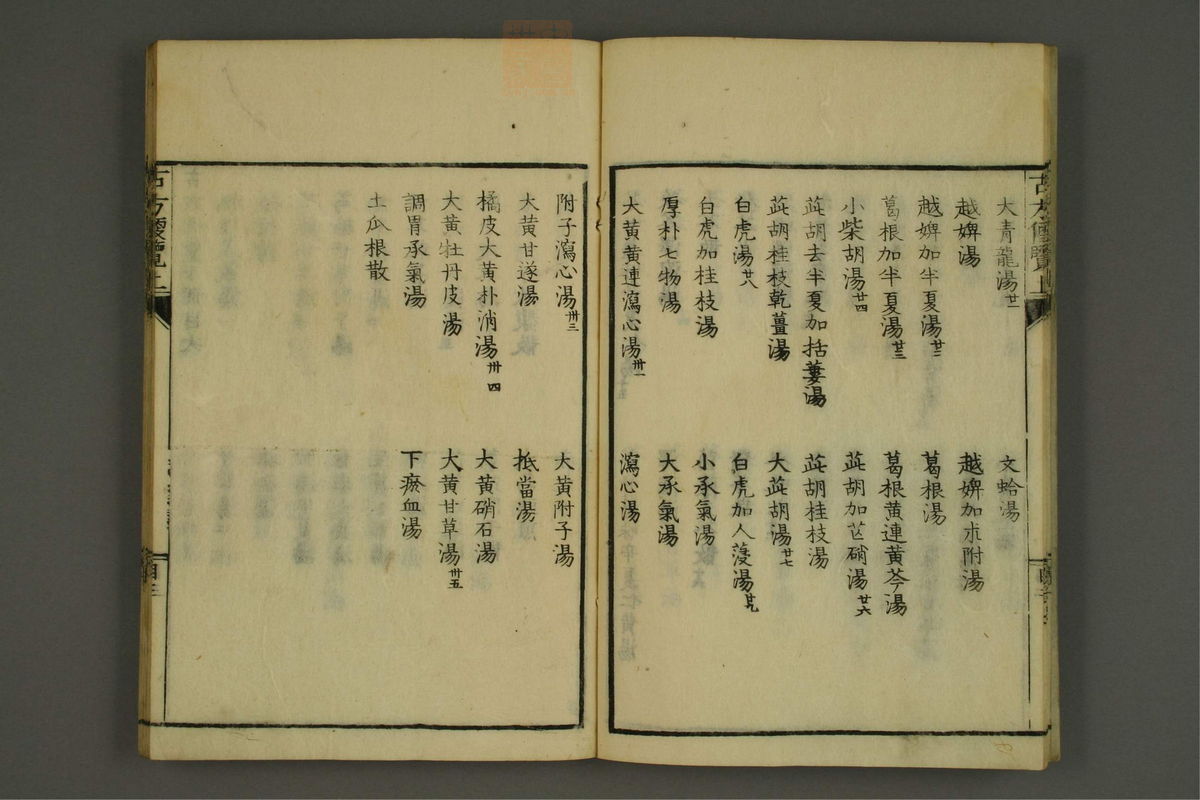 大青龍湯廿一
文蛤湯
越婢湯
越婢加朮附湯
越婢加半夏湯廿二
葛根湯
葛根加半夏湯廿三
葛根黄連黄芩湯
小柴胡湯廿四
茈胡加芒硝湯廿六
茈胡去半夏加括蔞湯
茈胡桂枝湯
茈胡桂枝乾薑湯
大茈胡湯廿七
白虎湯廿八
白虎加人薓湯廿九
白虎加桂枝湯
小承氣湯
厚朴七物湯
大承氣湯
大黄黄連瀉心湯卅一
瀉心湯
附子瀉心湯卅三
大黄附子湯
大黄甘遂湯
抵當湯
橘皮大黄朴消湯卅四
大黄硝石湯
大黄牡丹皮湯
大黄甘草湯卅五
調胃承氣湯
下瘀血湯
土瓜根散
古方便覽上